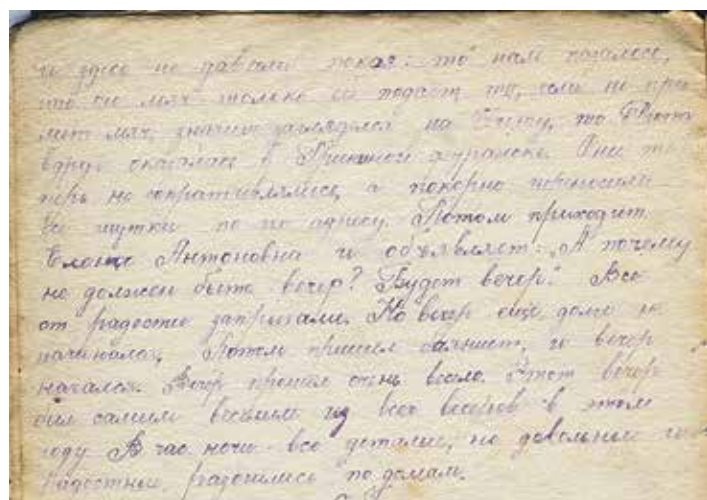 и здесь не давали покоя: то нам казалось,
что он мяч только ей подаёт то, если не при
мет мяч, значит загляделся на
вдруг оказалась в Они те
перь не сопротивлялись, а покорно переносили
все шутки по их адресу. Потом приходит
Елена Антоновна и объявляет: „А почему
не должен быть вечер? Будет вечер." Все
от радости запрыгали. Но вечер ещё долго не
начинался, Потом пришел баянист, и вечер
начался. Вечер прошёл очень весело. Этот вечер
был самым весёлым из всех вечеров в этом
году В час ночи все усталые, но довольные и
радостные, разошлись по домам.